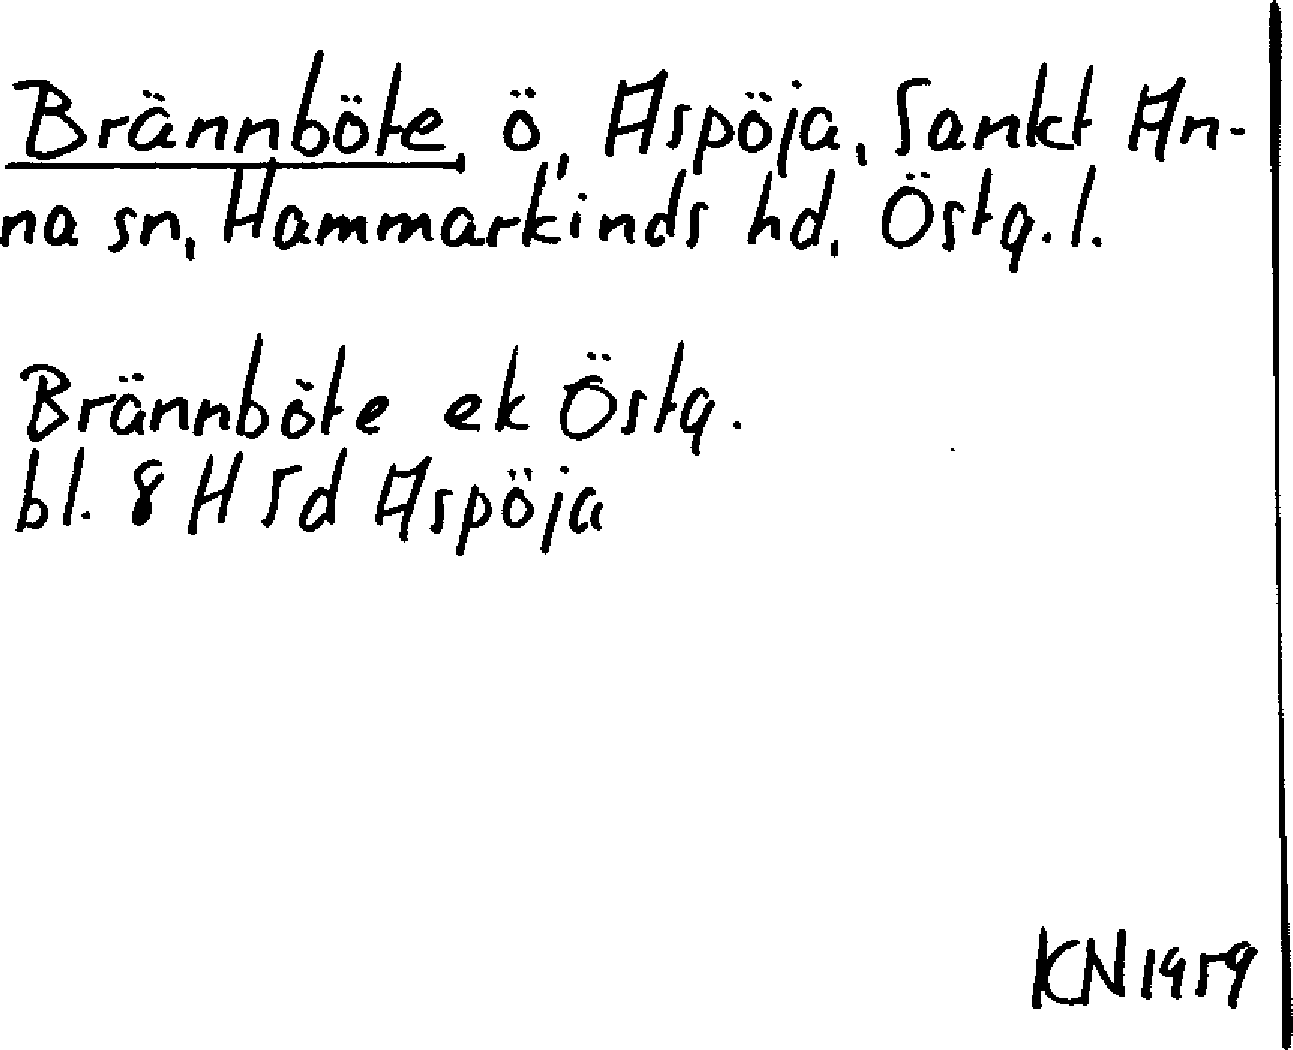 Brännböte, ö, Aspöja, Sankt An-
na sn, Hammarkinds hd, Östg. l.
Brännböte ek Östg.
bl. 8 H 5d Aspöja
KN 1959